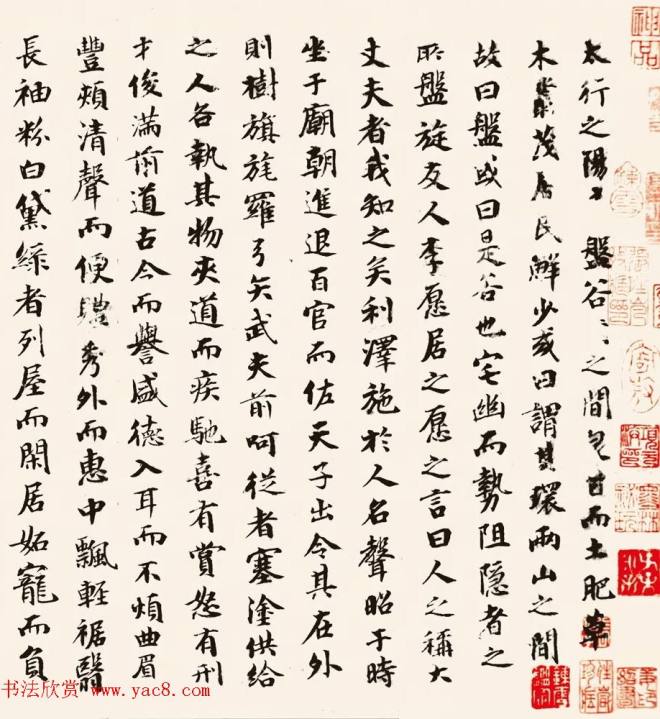 太行之陽 盤谷〻之間泉甘而土肥草
木叢茂居民鮮少或曰謂其環兩山之間
故曰盤或曰是谷也宅幽而勢阻隱者之
所盤旋友人李愿居之愿之言曰人之稱大
丈夫者我知之矣利澤施於人名聲昭于時
坐于廟朝進退百官而佐天子出令其在外
則樹旗旄羅弓矢武夫前呵從者塞塗供給
之人各執其物夾道而疾馳喜有賞怒有刑
才俊滿前道古今而譽盛德入耳而不煩曲眉
豐頰清聲而便體秀外而惠中飄輕裾翳
長袖粉白黛綠者列屋而閑居妬寵而負
神品
书法欣赏 www.yac8.com